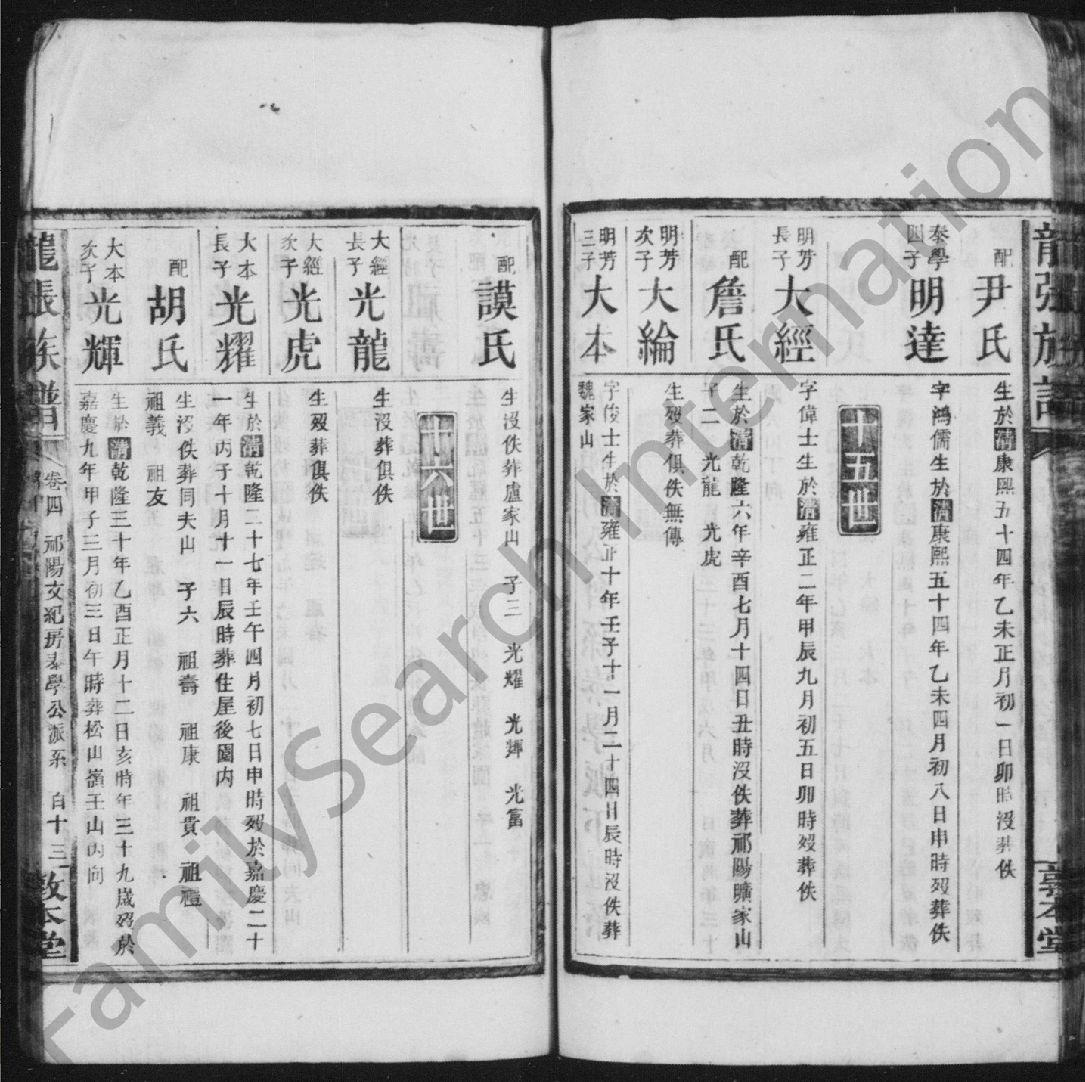 龍張族譜
敦本堂
配
尹氏
生於清康熙五十四年乙未正月初一日卯時沒葬佚
泰學
四子
明達
字鴻儒生於清康熙五十四年乙未四月初八日申時歿葬佚
十五世
明芳
長子
大經
字偉士生於清雍正二年甲辰九月初五日卯時歿葬佚
配
詹氏
生於清乾隆六年辛酉七月十四日丑時沒佚葬祁陽曠家山
子二 光龍 光虎
明芳
次子
大綸
生歿葬俱佚無傳
明芳
三子
大本
字俊士生於清雍正十年壬子十一月二十四日辰時沒佚葬
魏家山
配
謨氏
生沒佚葬廬家山 子三 光耀 光輝 光富
十六世
大經
長子
光龍
生沒葬俱佚
大經
次子
光虎
生歿葬俱佚
大本
長子
光耀
生於清乾隆二十七年壬午四月初七日申時歿於嘉慶二十
一年丙子十月十一日辰時葬住屋後園內
配
胡氏
生沒佚葬同夫山 子六 祖壽 祖康 祖貴 祖禮
祖義 祖友
大本
次子
光輝
生於清乾隆三十年乙酉正月十二日亥時年三十九歲歿於
嘉慶九年甲子三月初三日午時葬松山嶺壬山丙向
龍張族譜
卷四 祁陽文紀房泰學公派系 百十三
敦本堂
FamilySearch International